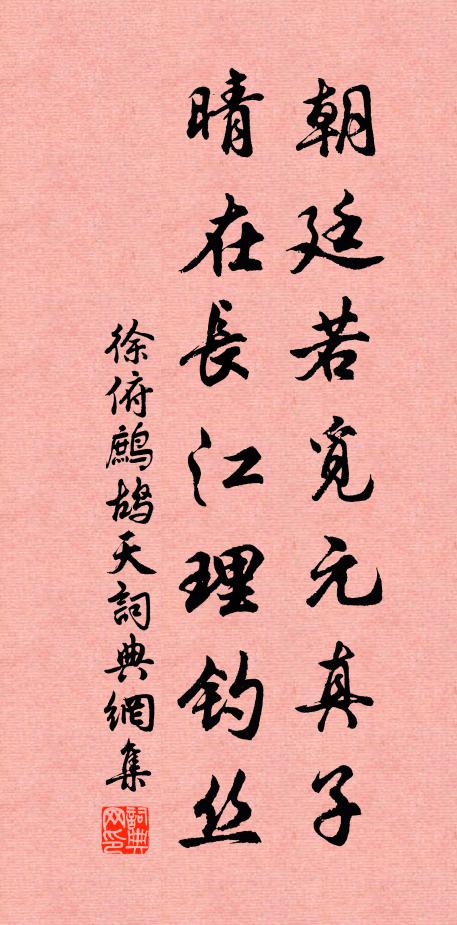 朝廷若覓元真子
晴在長江理钓丝
徐俯鷓鴣天詞典網集
詞典网印